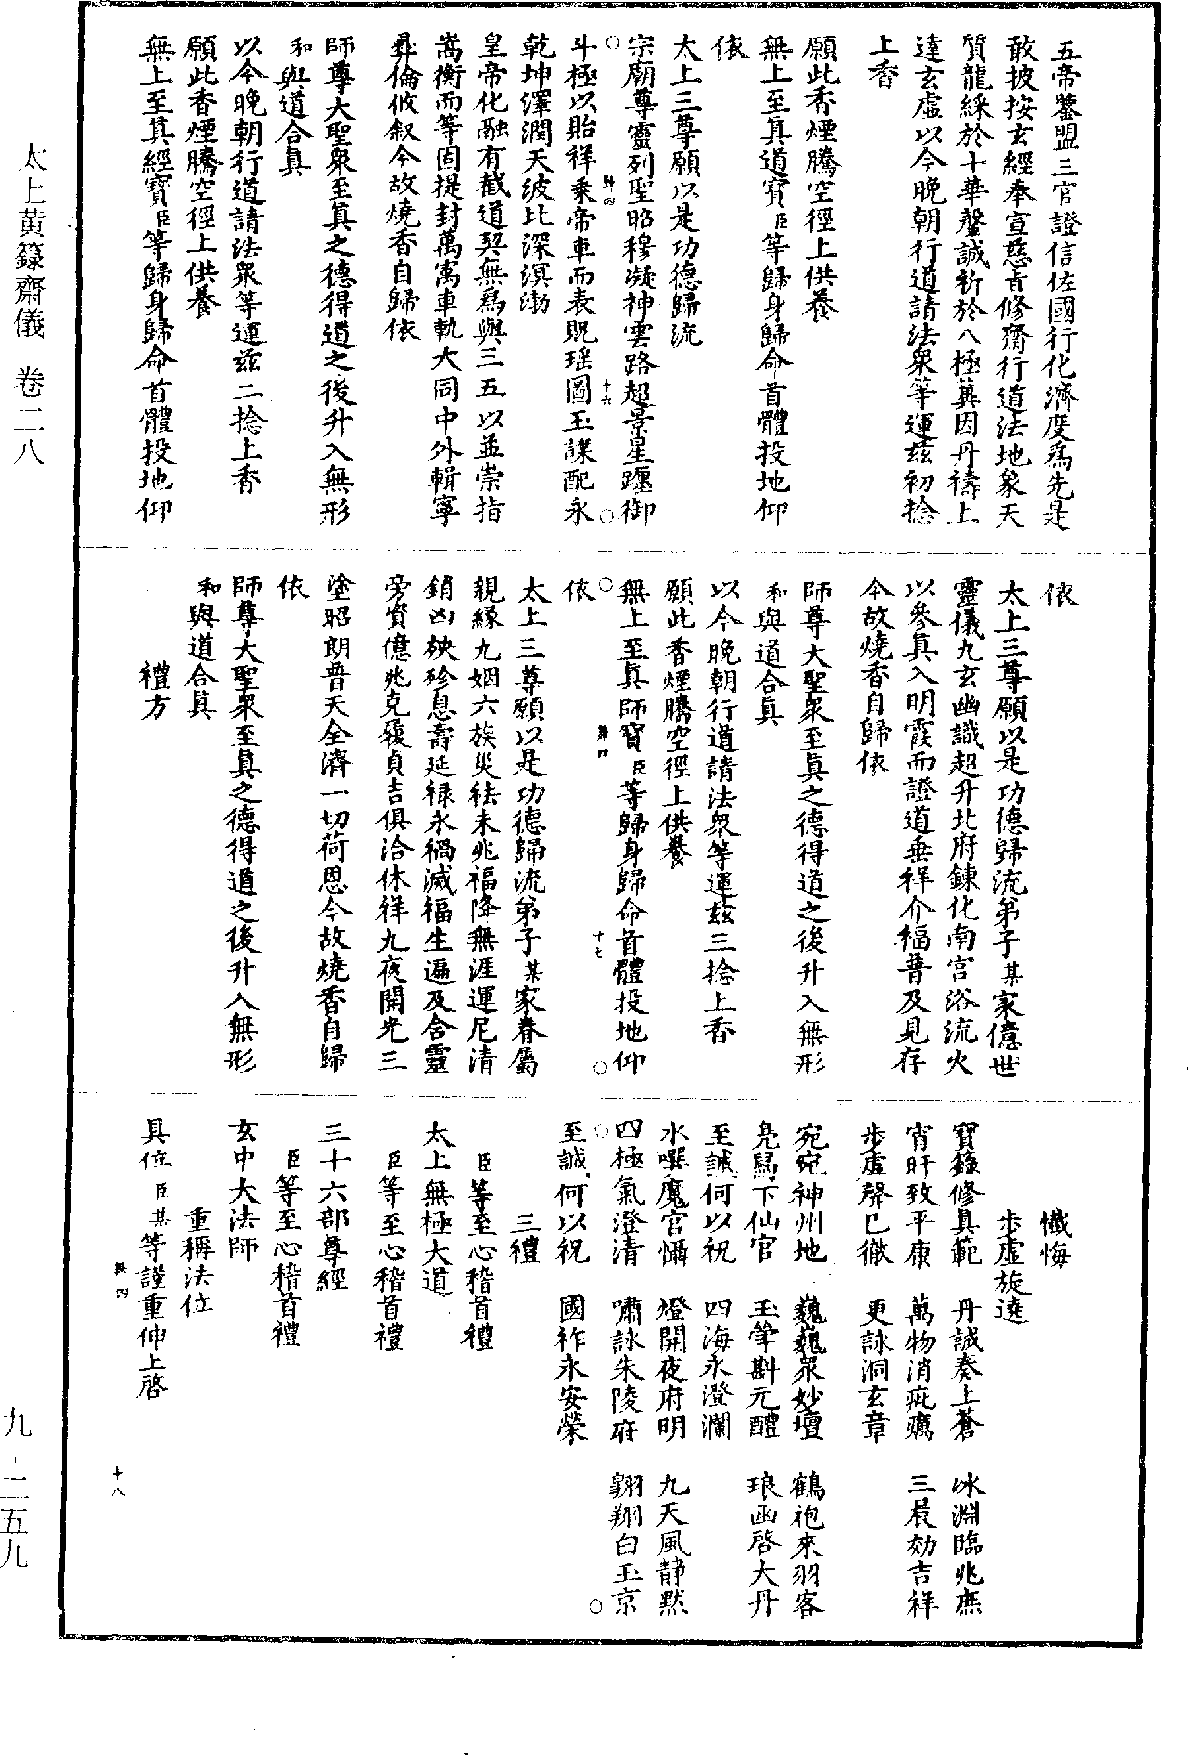 五帝鑒盟三官證信佐國行化濟度為先是
敢披按玄經奉宣慈旨修齋行道法地象天
質龍綵於十華罄誠祈於八極冀因丹禱上
達玄虛以今晚朝行道請法眾等運茲初捻
上香
願此香煙騰空徑上供養
無上至真道寶臣等歸身歸命首體投地仰
依
太上三尊願以是功德歸流
宗廟尊靈列聖昭穆凝神雲路超景星躔御
斗極以貽祥乘帝車而表貺瑶圖玉諜配永
乾坤澤潤天波比深溟渤
皇帝化融有截道契無為與三五以並崇指
嵩衡而等固提封萬寓車軌大同中外輯寧
彝倫攸叙今故燒香自歸依
師尊大聖眾至真之德得道之後升入無形
和與道合真
以今晚朝行道請法眾等運茲二捻上香
願此香煙騰空徑上供養
無上至真經寶臣等歸身歸命首體投地仰
依
太上三尊願以是功德歸流弟子某家億世
靈儀九玄幽識超升北府鍊化南宮浴流火
以參真入明霞而證道垂祥介福普及見存
今故燒香自歸依
師尊大聖眾至真之德得道之後升入無形
和與道合真
以今晚朝行道請法眾等運茲三捻上香
願此香煙騰空徑上供養
無上至真師寶臣等歸身歸命首體投地仰
依
太上三尊願以是功德歸流弟子某家眷屬
親緣九姻六族災祛未兆福降無涯運厄清
銷凶殃殄息壽延禄永禍滅福生遍及含靈
旁資億兆克履貞吉俱洽休祥九夜開光三
塗昭朗普天全濟一切荷恩今故燒香自歸
依
師尊大聖眾至真之德得道之後升入無形
和與道合真
禮方
懺悔
步虛旋遶
寶籙修真範 丹誠奏上蒼 冰淵臨兆庶
宵旰致平康 萬物消疵癘 三辰効吉祥
步虛聲已徹 更詠洞玄章
宛宛神州地 巍巍眾妙壇 鶴袍來羽客
鳧舄下仙官 玉斝斟元醴 琅函啓大丹
至誠何以祝 四海永澄瀾
水噀魔宮懾 燈開夜府明 九天風靜默
四極氣澄清 嘯詠朱陵府 翱翔白玉京
至誠何以祝 國祚永安榮
三禮
臣等至心稽首禮
太上無極大道
臣等至心稽首禮
三十六部尊經
臣等至心稽首禮
玄中大法師
重稱法位
具位臣某等謹重伸上啓
十六
十七
十八
太上黃籙齋儀 卷二八
九-二五九